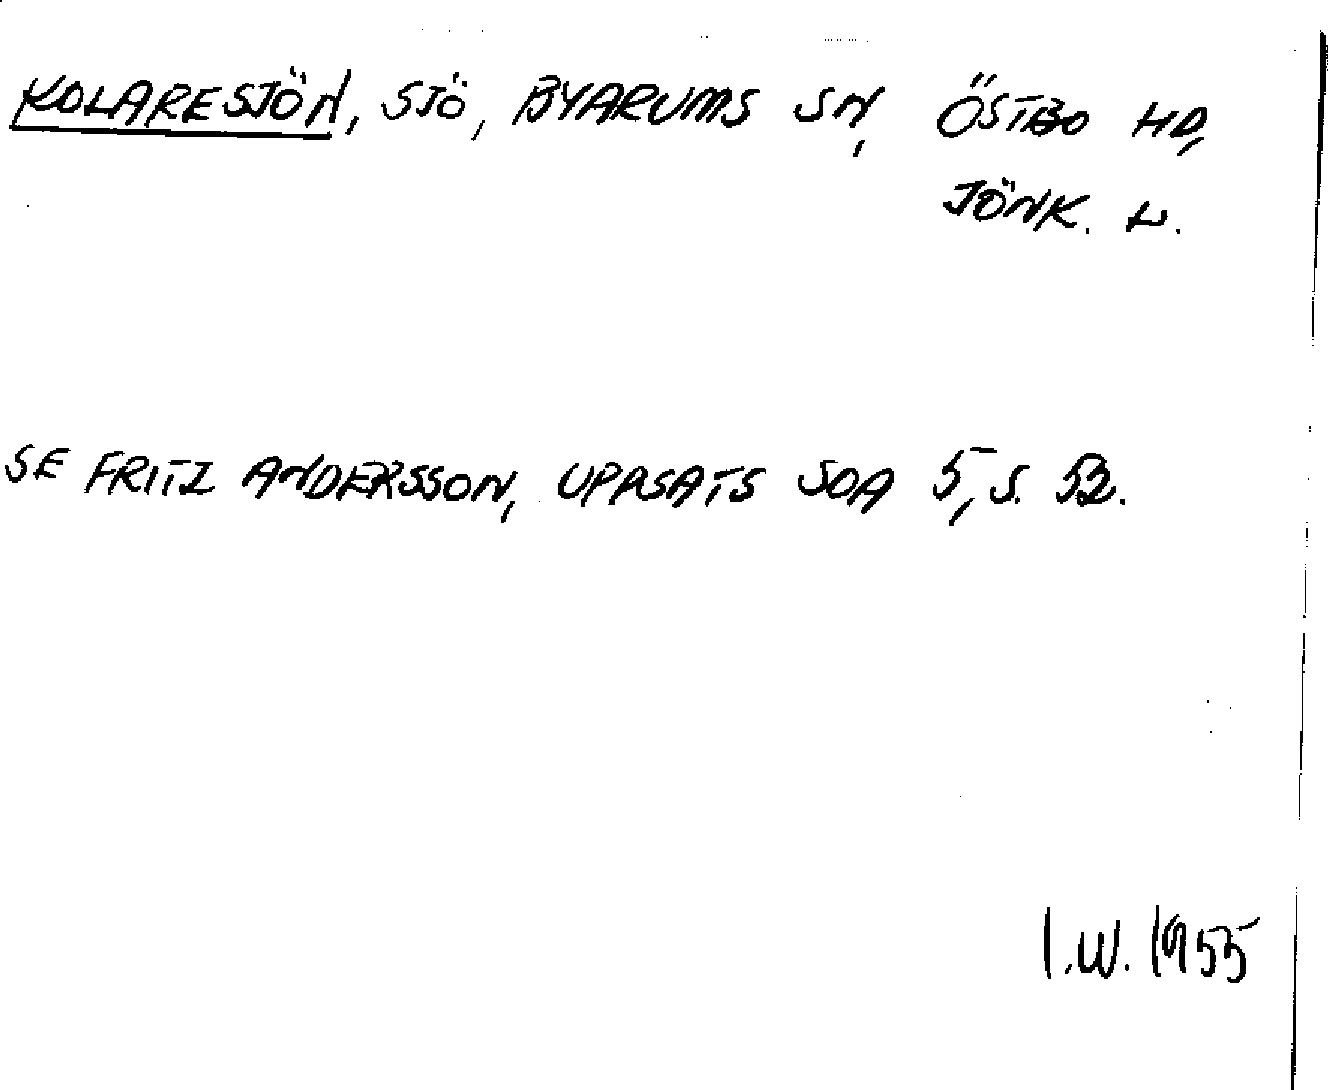 KOLARESJÖN, SJÖ, BYARUMS SN, ÖSTBO HD,
JÖNK. L.
SE FRITZ ANDERSSON, UPPSATS SOA 5, S. 52.
I.W. 1955